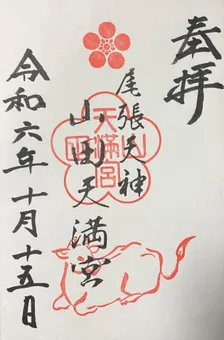 奉拝
尾張天神
山田天満宮
天満宮
令和六年十月十五日